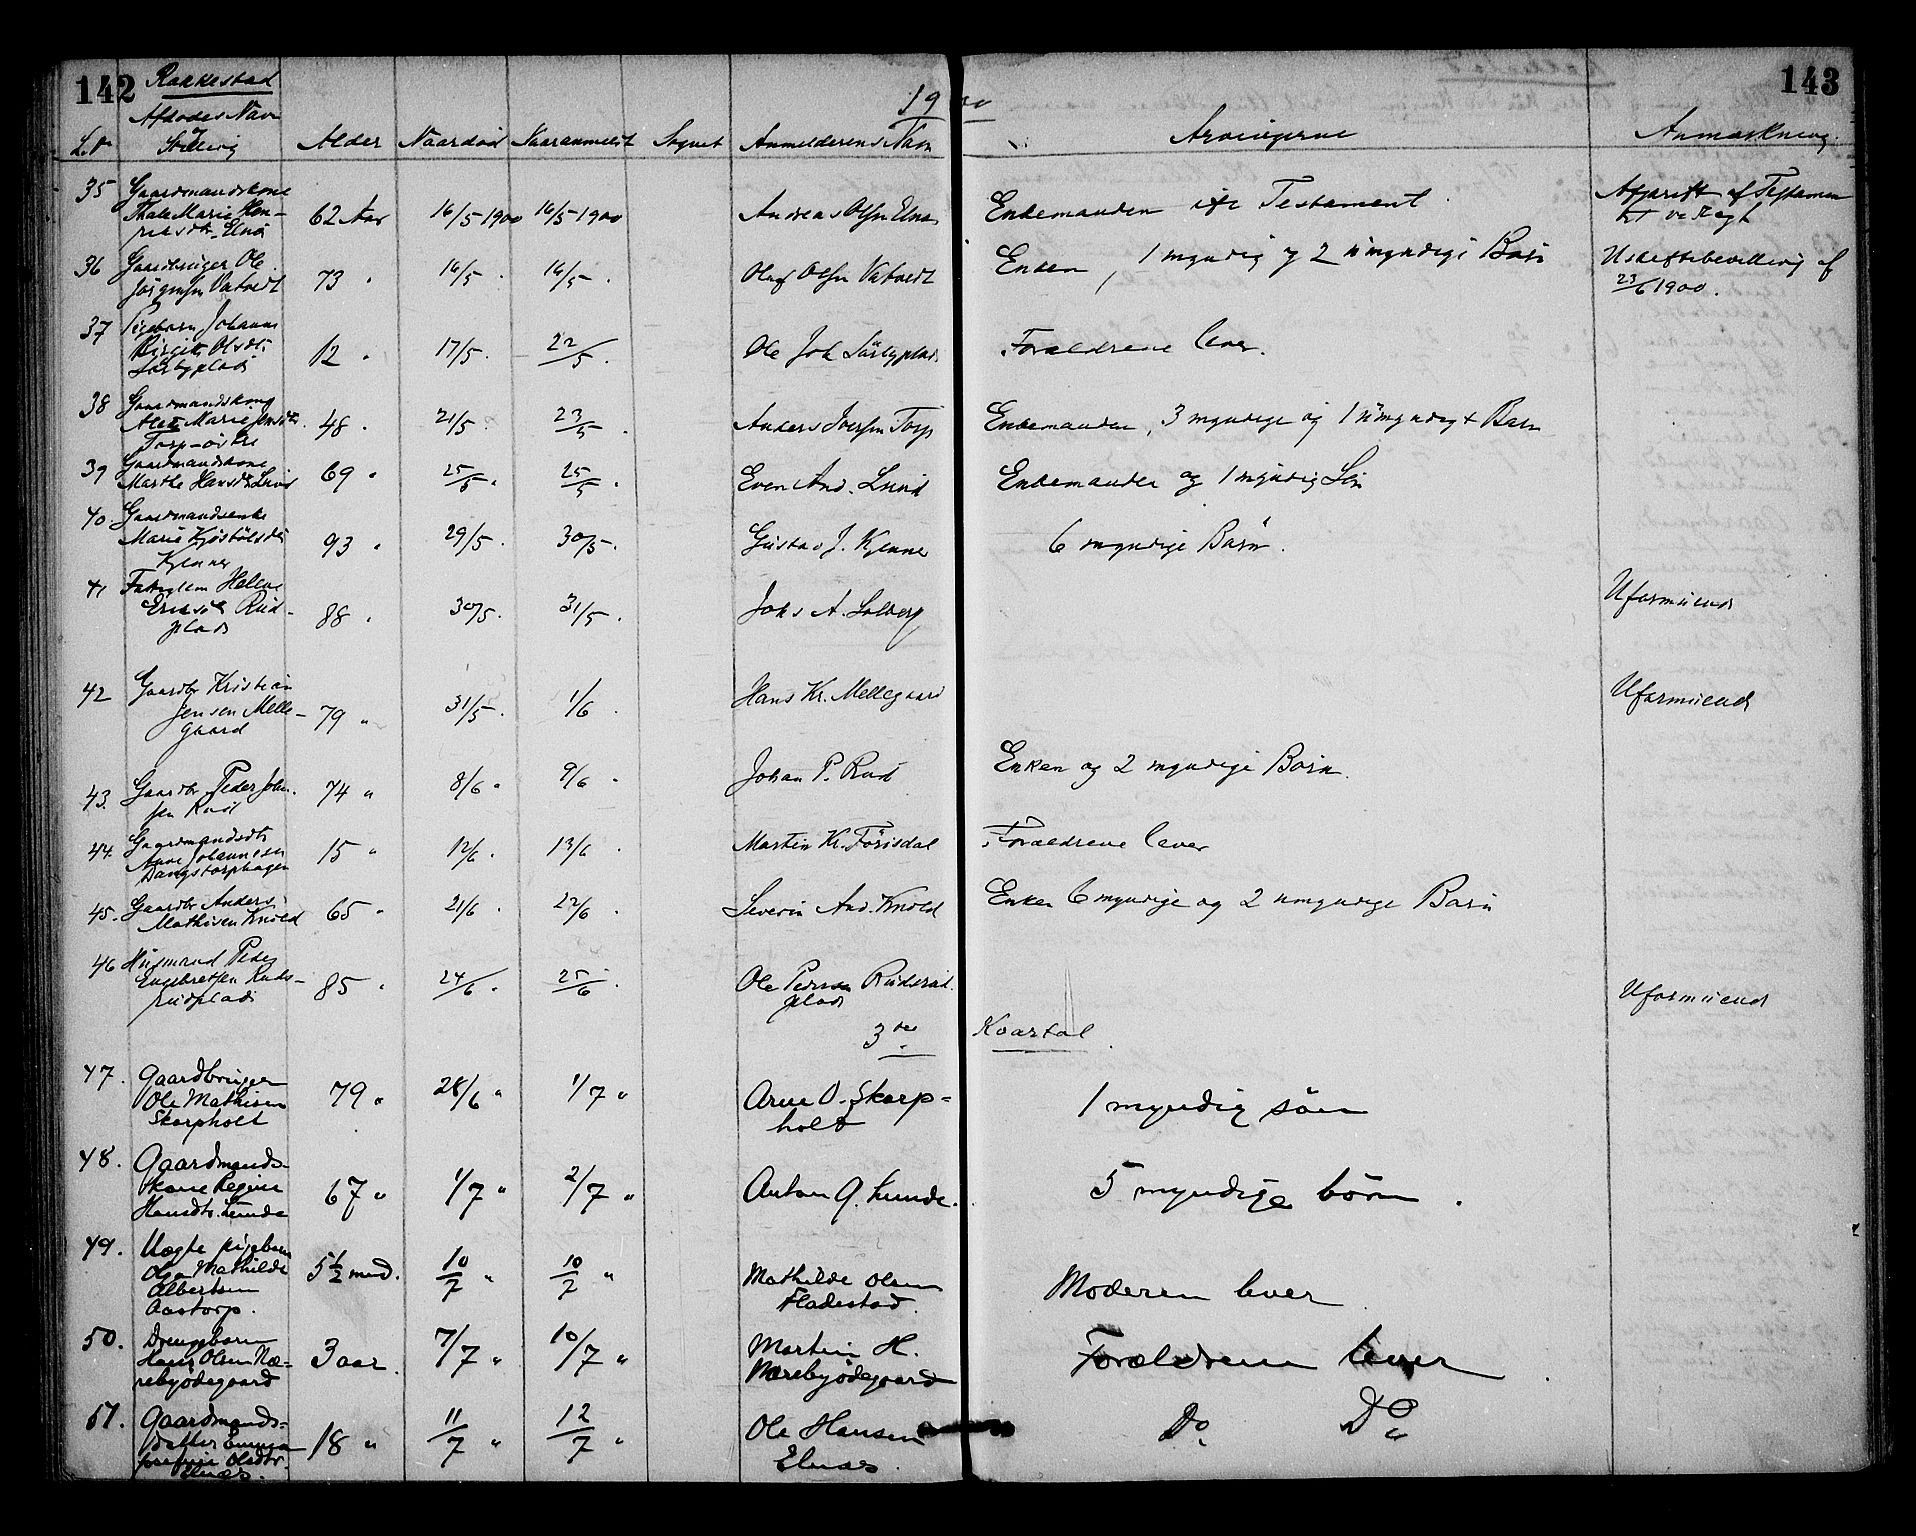 142 Rakkestad 1900 143
Afdødes Navn
L.No Stilling Alder Naar død Naar anmeldt Sognet Anmelderens Navn Arvingerne Anmærkning
35 Gaardmandskone
Thale Marie Hen- 62 Aar 16/5 1900 16/5 1900 Andreas Olsen Enkemanden Testament Afskrift af Testamen
riksdtr.
36 Gaardbruger Ole 73 " 16/5 16/5 Olaf Olsen Vatvedt Enken, 1 myndig og 2 umyndige Børn Uskiftebevilling af
Jørgensen Vatvedt 23/6 1900.
37 Pigebarn Johanne
Birgitte Olsdtr. 12 " 17/5 22/5 Ole Joh. Sørbyplads Forældrene lever.
Sørbyplads
38 Gaardmandskone
Marie Jensdtr. 48 " 21/5 23/5 Anders Iversen Torp Enkemanden, 3 myndige og 1 umyndigt Barn
Torp østre
39 Gaardmandskone
Marthe Hansdtr Lund 69 " 25/5 25/5 Even And. Lund Enkemanden og 1 myndig Søn
40. Gaardmandsenke
Marie Kjøstølsdtr 93 " 29/5 30/5 Gustav J. Kjenner 6 myndige Børn.
Kjenner
41 Fattiglem Hellene
Eriksdtr Rud- 88 " 30/5 31/5 Johs A. Solberg Uformuende
plads
42 Gaardbr Kristian
Jensen Melle- 79 " 31/5 1/6 Hans Kr. Mellegaard Uformuende
gaard
43. Gaardbr Peder Johan- 74 " 8/6 9/6 Johan P. Rud Enken og 2 myndige Børn.
sen Rud
44. Gaardmandsdtr
Anne Johannesen 15 " 12/6 13/6 Martin Kr. Førisdal Forældrene lever
Dangstorphagen
45. Gaardbr Anders
Mathisen Knold 65 " 21/6 22/6 Severin And. Knold Enken 6 myndige og 2 umyndige Børn
46 Husmand Peder
Engebretsen Ruds- 85 " 24/6 25/6 Ole Pedersen Rudsrud- Uformuende
rudplads plads
3die Kvartal
47. Gaardbruger
Ole Mathisen 79 " 28/6 " 1/7 " Arne O. Skarp= 1 myndig søn
Skarpholt holt
48. Gaardmands-
kone Regine 67 " 1/7 " 2/7 " Anton G. Lunde. 5 myndige børn.
Hansdtr. Lunde
49. Uægte pigebarn
Olga Mathilde 5½ mnd. 10/7 " 10/7 " Mathilde Olsen Moderen lever
Albertsen Fladestad.
Aastorp.
50. Drengebarn
Hans Olsen Næ= 3 aar. 7/7 " 10/7 " Martin H. Forældrene lever
rebyødegaard Nærebyødegaard
51. Gaardmands=
datter Emma 18 " 11/7 " 12/7 " Ole Hansen Do Do
Josefine Olsdtr. Elnæs
Elnæs.